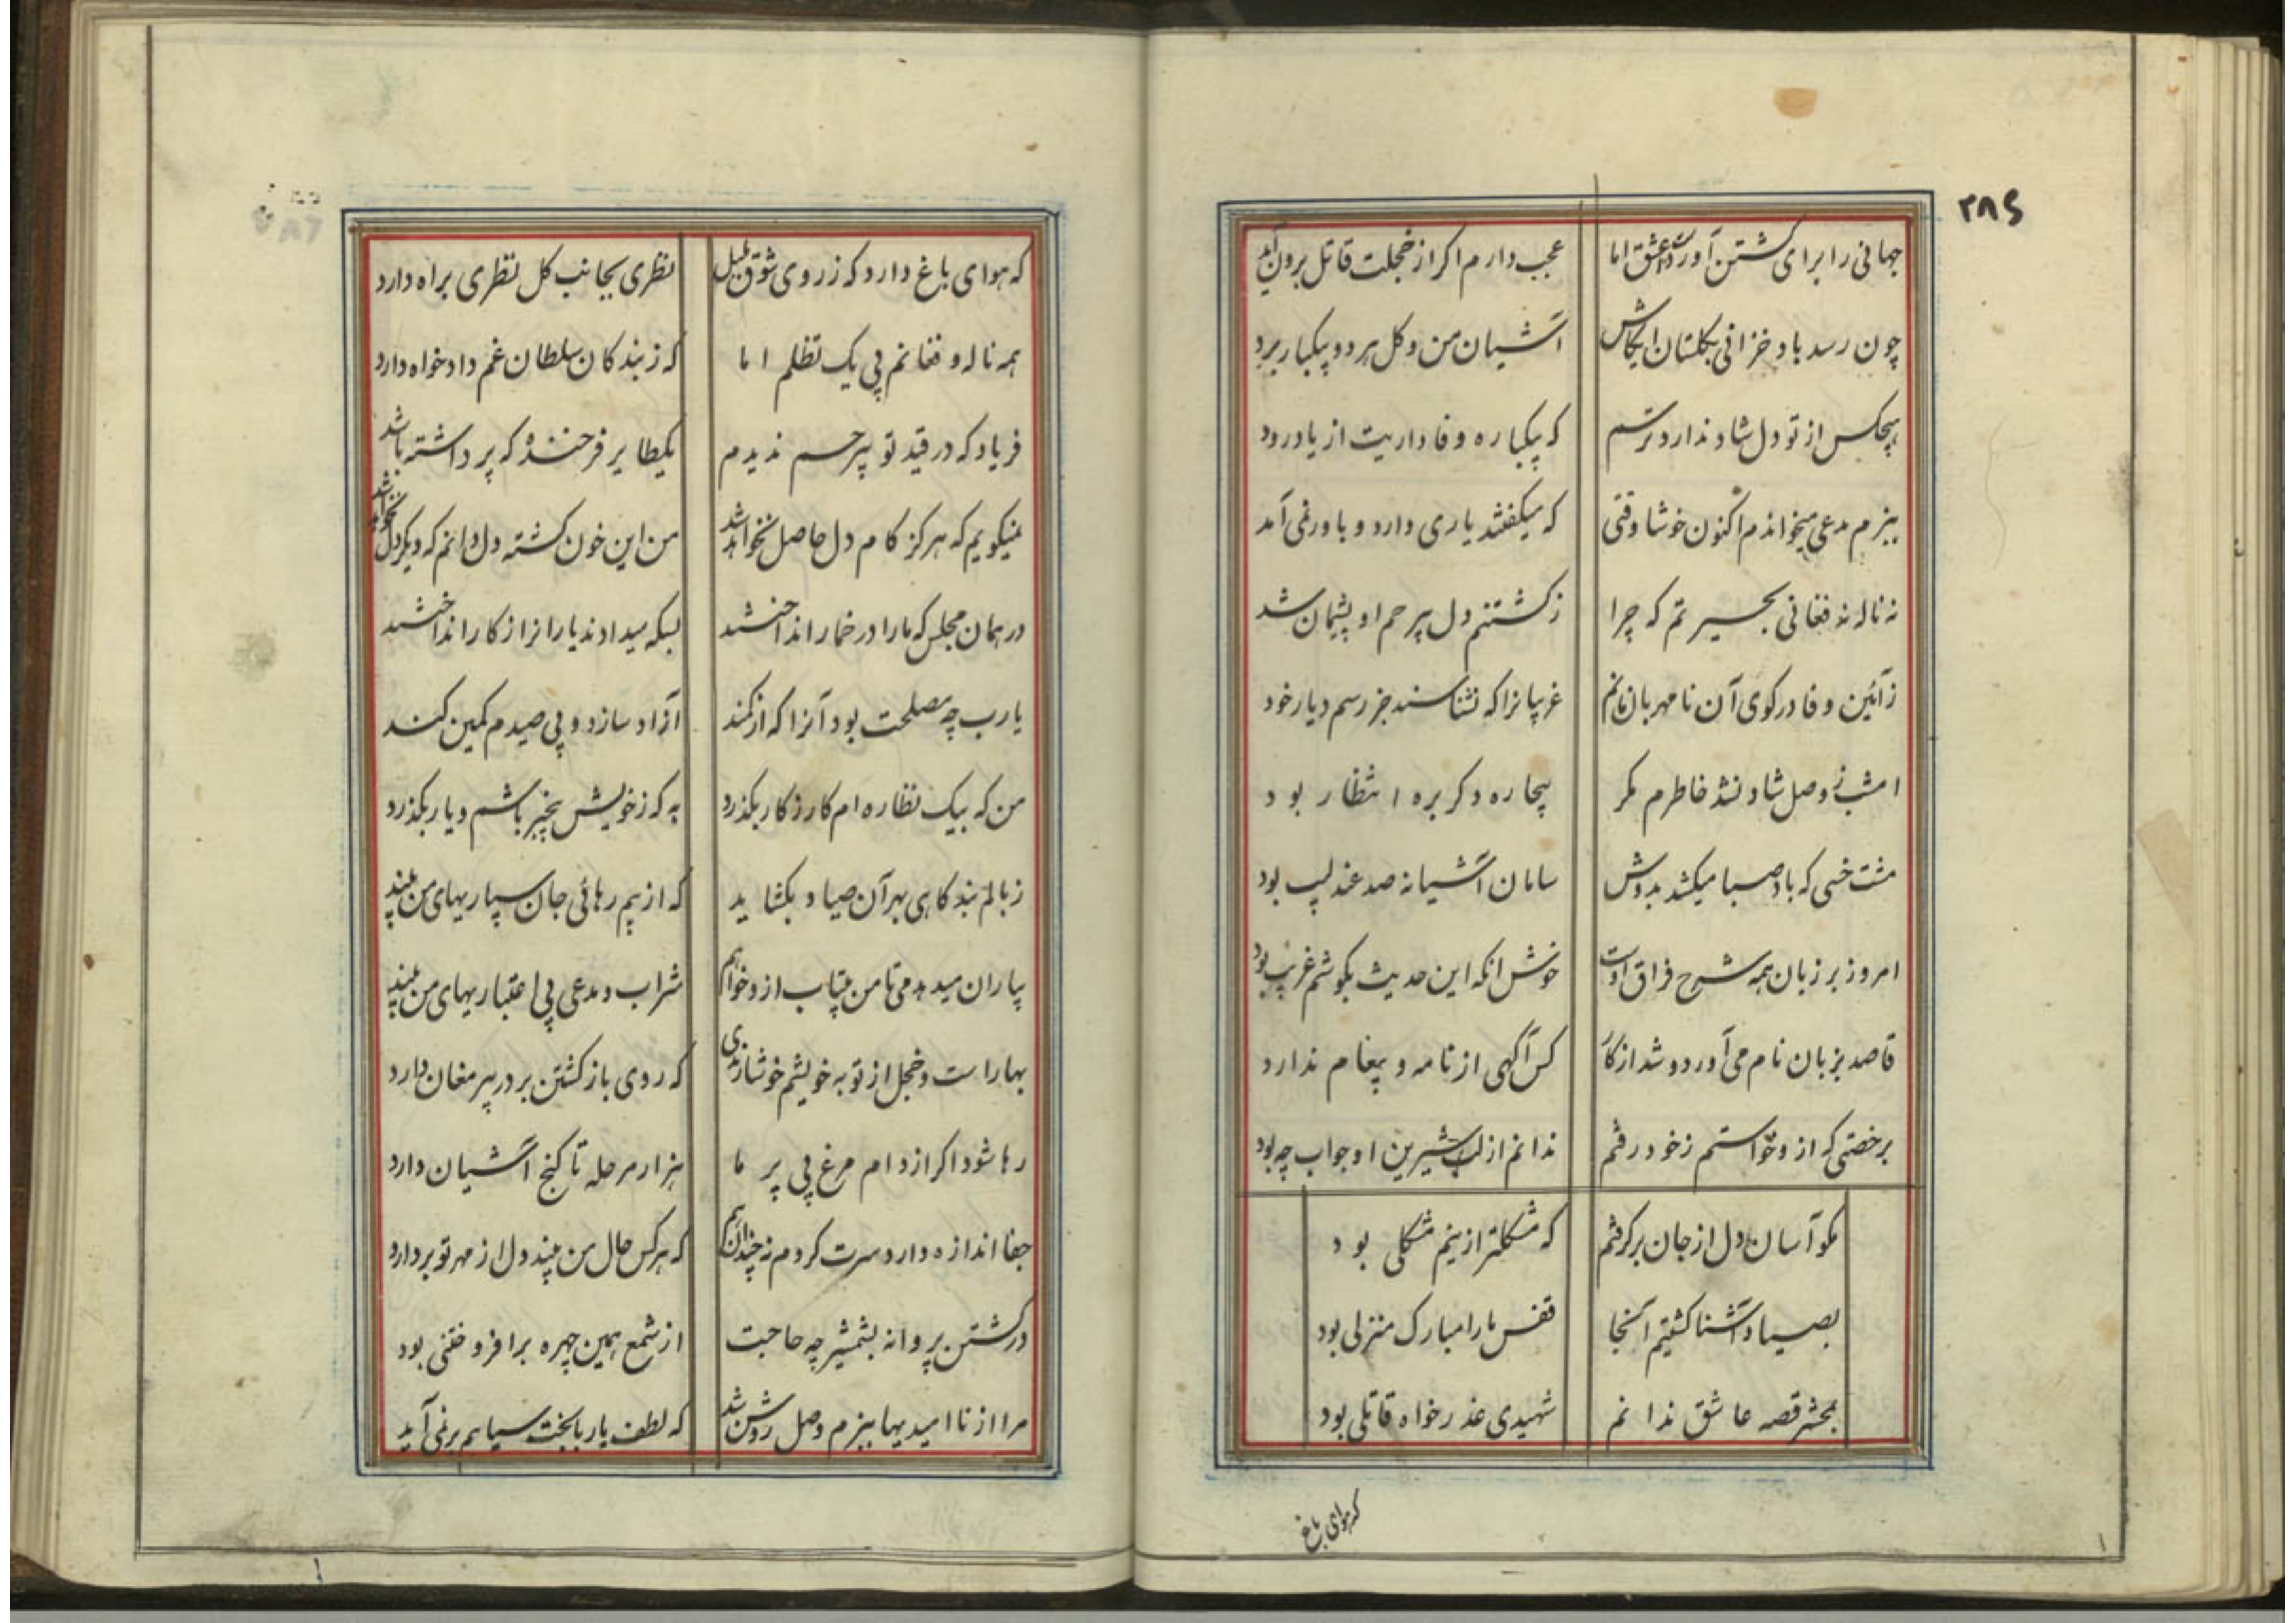 ۲۸۶
جهانی را برای کشتن آورد عشق اما عجب دارم اکر از خجلت قاتل برون آید
چون رسد باد خزانی بکلستان ایکاش آشیان من و کل هر دو بیکبار برد
هیچکس از تو دل شاد ندارد ترسم که بیکباره وفاداریت از یاد رود
ببزم مدعی میخواندم اکنون خوشا وقتی که میکفتند یاری دارد و باور نمی آمد
نه ناله نه فغانی بحسیرتم که چرا ز کشتنم دل بیرحم او پشیمان شد
ز آئین وفا در کوی آن نامهربان مانم غریبانرا که نشناسند جز رسم دیار خود
امشب ز وصل شاد نشد خاطرم مکر بیچاره دکر بره انتظار بود
مشت خسی که باد صبا میکشد بدوش سامان آشیانه صد عندلیب بود
امروز بر زبان همه شرح فراق اوست خوش انکه این حدیث بکوشم غریب بود
قاصد بزبان نام می آورد و شد از کار کس آکهی از نامه و پیغام ندارد
برخصتی که از و خواستم ز خود رفتم ندانم از لب شیرین او جواب چه بود
مکو آسان دل از جان برکرفتم که مشکلتر ازینم مشکلی بود
بصیاد آشنا کشتیم آنجا قفس ما را مبارک منزلی بود
بمحشر قصه عاشق ندانم شهیدی عذرخواه قاتلی بود
که هوای باغ
که هوای باغ دارد که ز روی شوق بلبل نظری بجانب کل نظری براه دارد
همه ناله و فغانم پی یک تظلم اما که ز بندکان سلطان غم دادخواه دارد
فریاد که در قید تو بیرحم ندیدم یکطایر فرخنده که پر داشته باشد
نمیکویم که هرکز کام دل حاصل نخواهد شد من این خون کشته دل دانم که دیکر دل نخواهد شد
در همان مجلس که ما را در خمار انداختند بسکه میدادند یارانرا ز کار انداختند
یارب چه مصلحت بود آنرا که از کمند آزاد سازد و پی صیدم کمین کند
من که بیک نظاره ام کار ز کار بکذرد به که ز خویش بیخبر باشم و یار بکذرد
ز بالم بند کاهی بهر آن صیاد بکشاید که از بیم رهائی جان سپاریهای من بیند
بیاران میدهد می تا من بیتاب از و خواهم شراب و مدعی بی اعتباریهای من بیند
بهار است و خجل از توبه خویشم خوشا رندی که روی باز کشتن بر در پیر مغان دارد
رها شود اکر از دام مرغ بی پر ما هزار مرحله تا کنج آشیان دارد
جفا اندازه دارد سرت کردم نه چندان هم که هر کس حال من بیند دل از مهر تو بردارد
در کشتن پروانه بشمشیر چه حاجت از شمع همین چهره برافروختنی بود
مرا از ناامیدیها ببزم وصل روشن شد که لطف یار با بخت سیاهم بر نمی آید